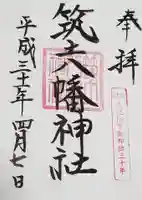 奉拝
筑土八幡神社
平成三十年四月七日